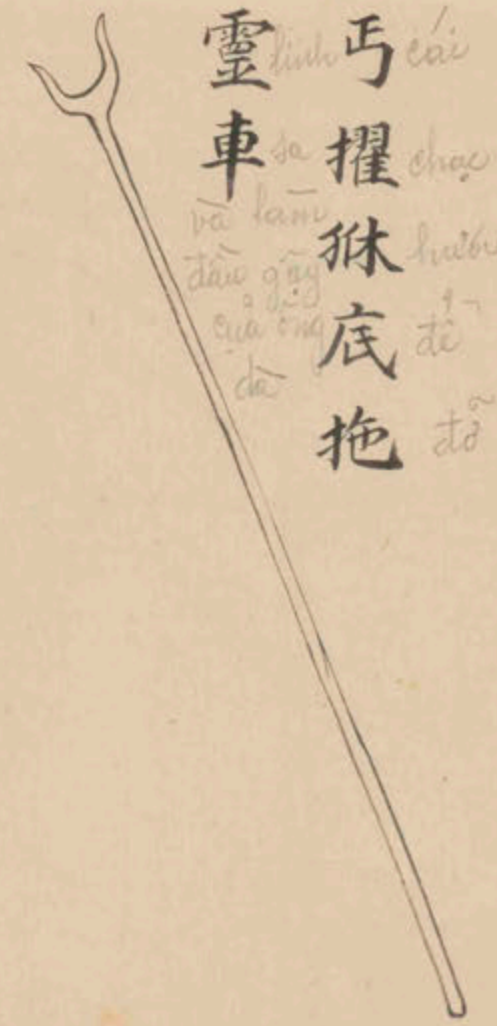 丐擢底拖
靈車
cái
chạc
hươu
để
đỡ
linh
sa
và làm
đầu gậy
của ông